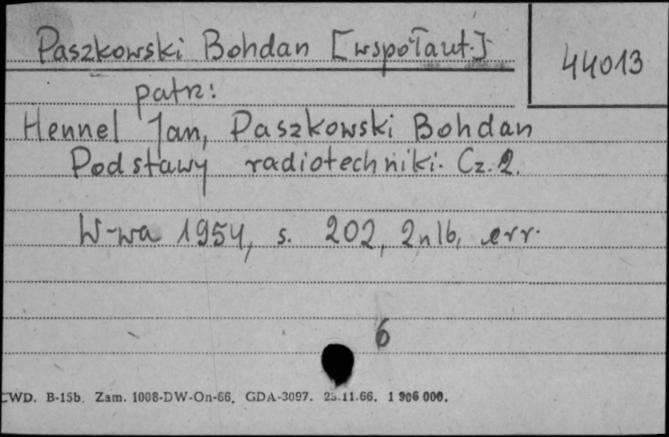 Paszkowski Bohdan [współaut.]
44013
patrz:
Hennel Jan, Paszkowski Bohdan
Podstawy radiotechniki. Cz. 2.
W-wa 1954, s. 202, 2nlb, err.
6
CWD. B-15b. Zam. 1008-DW-On-66. GDA-3097. 23.11.66. 1 906 000.